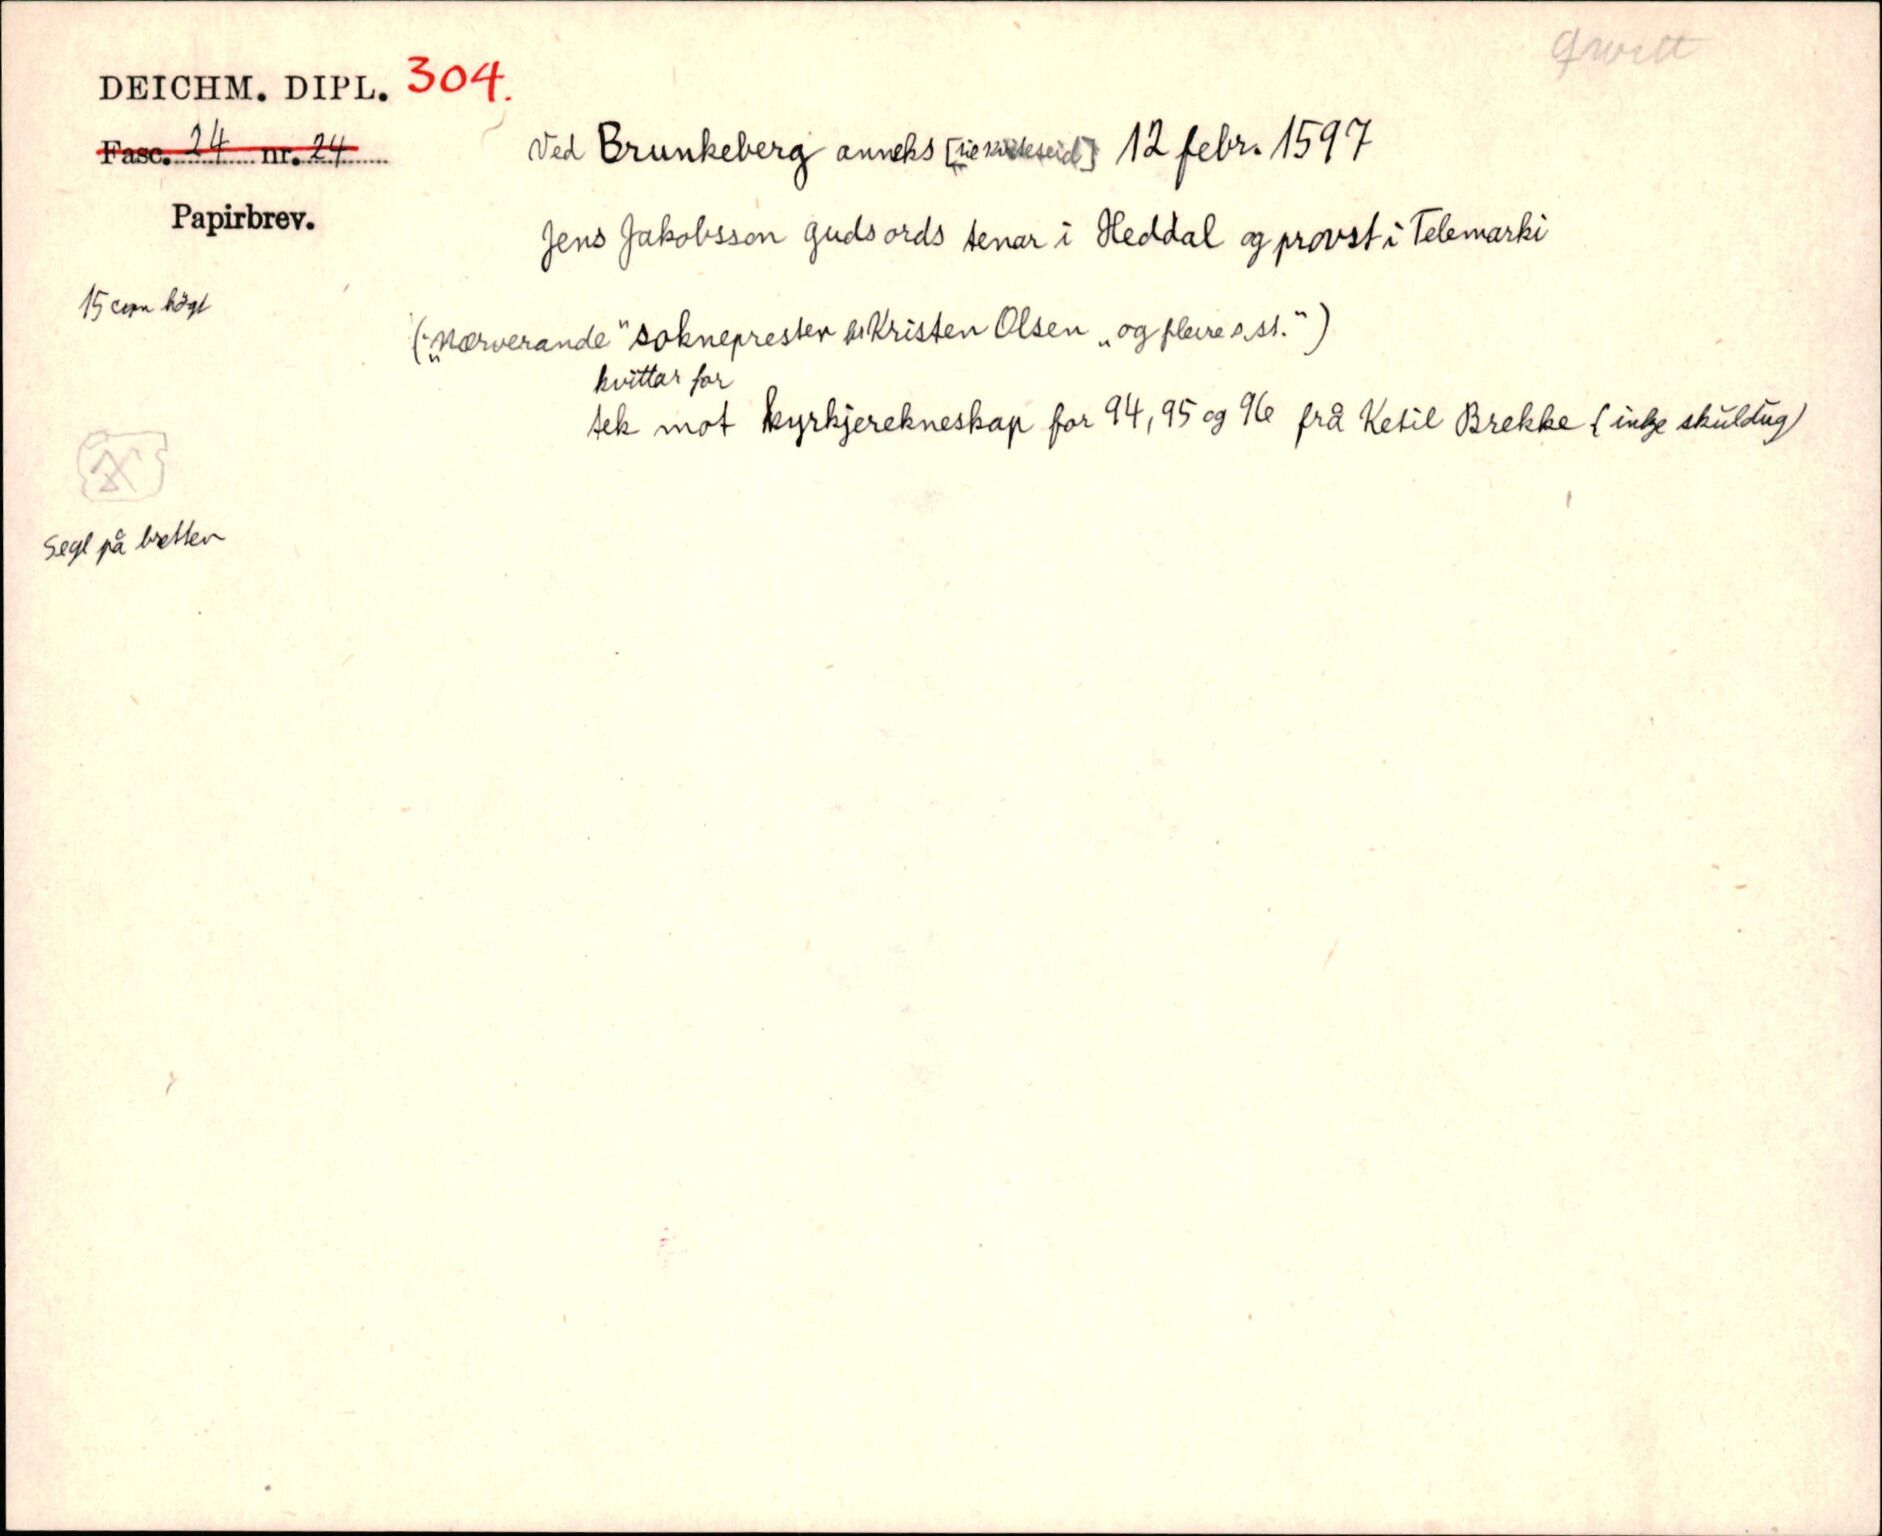 DEICHM. DIPL. 304.
Fasc. 24 nr. 24
Papirbrev.
15 cm högt
Segl på bretten
Ved Brunkeberg anneks [til Kviteseid] 12 febr. 1597
Jens Jakobsson guds ords tenar i Heddal og provst i Telemarki
("Nærverande" soknepresten hr Kristen Olsen „og fleire s.st.")
kvittar for
tek mot kyrkjerekneskap for 94, 95 og 96 frå Ketil Brekke (inkje skuldug)